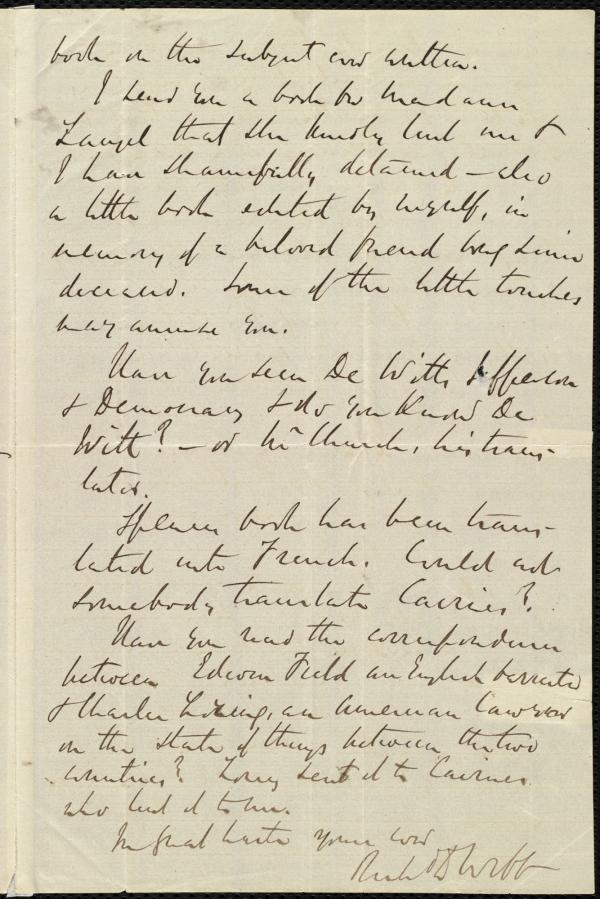 book on the subject ever written.
I send you a book for Madame
Laugel that she kindly lent me &
I have shamefully detained – also
a little book edited by myself, in
memory of a beloved friend long since
deceased. Some of the little touches
may amuse you.
Have you seen De Witts Jefferson
& Democracy & do you know De
Witt? – or Mr Church, his trans-
lator.
Spences book has been trans-
lated into French. Could not
somebody translate Cairnes?
Have you read the correspondence
between Edwin Field an English barrister
& Charles Loring, an American Lawyer
on the state of things between the two
countries? Loring sent it to Cairnes
who lent it to me.
In great haste yours ever
Richd D Webb